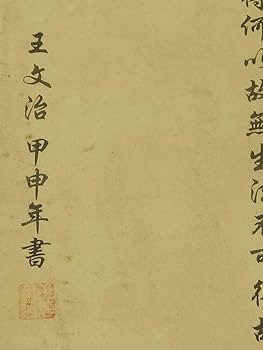 得何以故無生法不可得故
王文治甲申年書